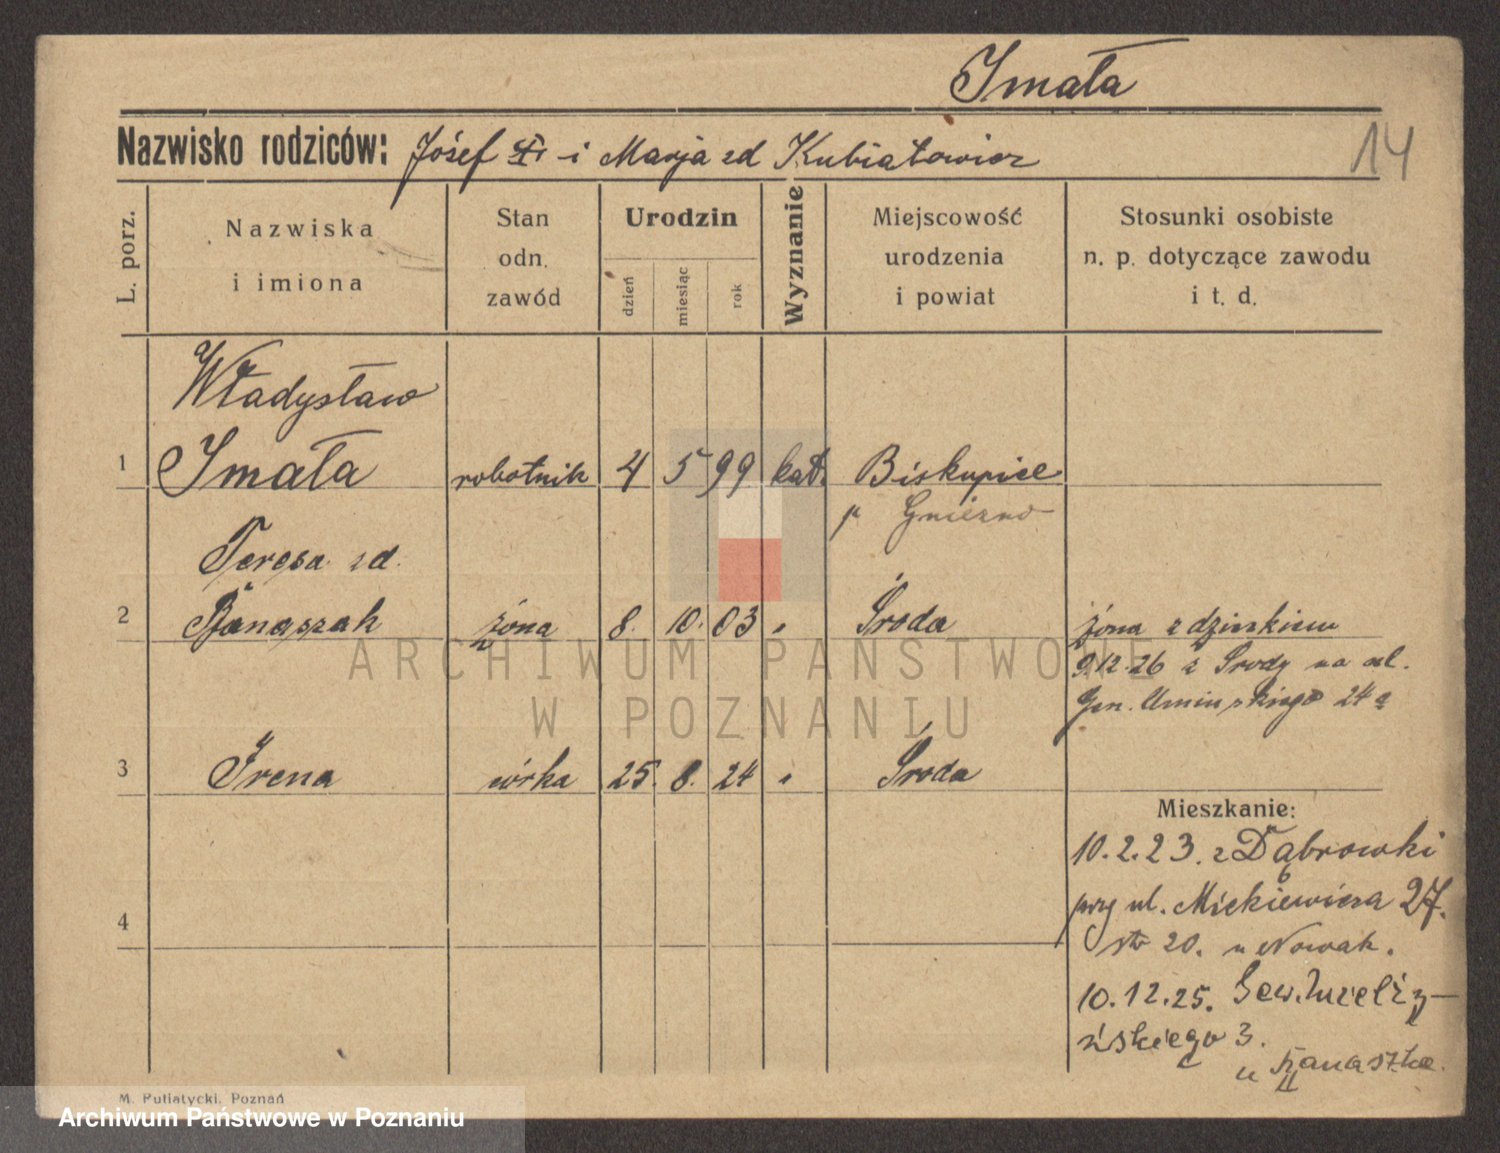 Smała
Nazwisko rodziców: Józef i Marja zd Kubiatowicz
14
L. porz.
Nazwiska
i imiona
Stan
odn.
zawód
Urodzin
dzień
miesiąc
rok
Wyznanie
Miejscowość
urodzenia
i powiat
Stosunki osobiste
n. p. dotyczące zawodu
i t. d.
Władysław
1 Smała robotnik 4 5 99 kat. Biskupice
p Gniezno
Teresa zd.
2 Banaszak żona 8. 10. 03 " Środa żona z dzieckiem
9.12.26 z Środy na ul.
Gen. Umińskiego 24a
3 Irena córka 25. 8. 24 " Środa
Mieszkanie:
10.2.23. z Dąbrowki
przy ul. Mickiewicza 27.
4
str 20. u Nowak.
10.12.25. Sew.
3.
u
M. Putiatycki, Poznań
ARCHIWUM PAŃSTWOWE
W POZNANIU
Archiwum Państwowe w Poznaniu